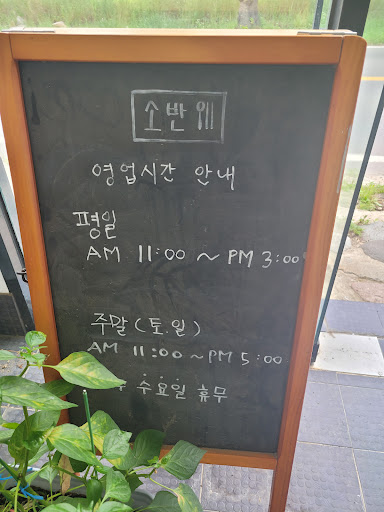 소반
영업시간 안내
평일
AM 11:00 ~ PM 3:00
주말(토.일)
AM 11:00 ~ PM 5:00
수요일 휴무